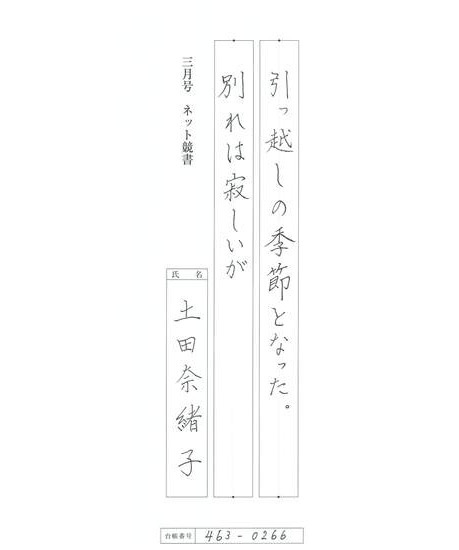 引っ越しの季節となった。
別れは寂しいが
三月号 ネット競書
氏名
土田奈緒子
台帳番号 463-0266